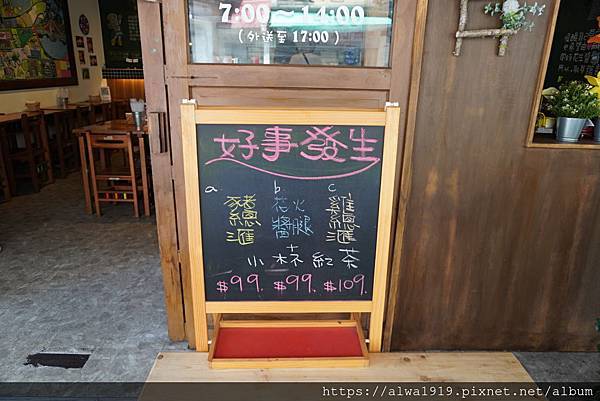 7:00～14:00
(外送至 17:00)
好事發生
a. b. c.
豬總匯 花火醬腿 雞總匯
小杯紅茶
$99. $99. $109.
https://alwa1919.pixnet.net/album